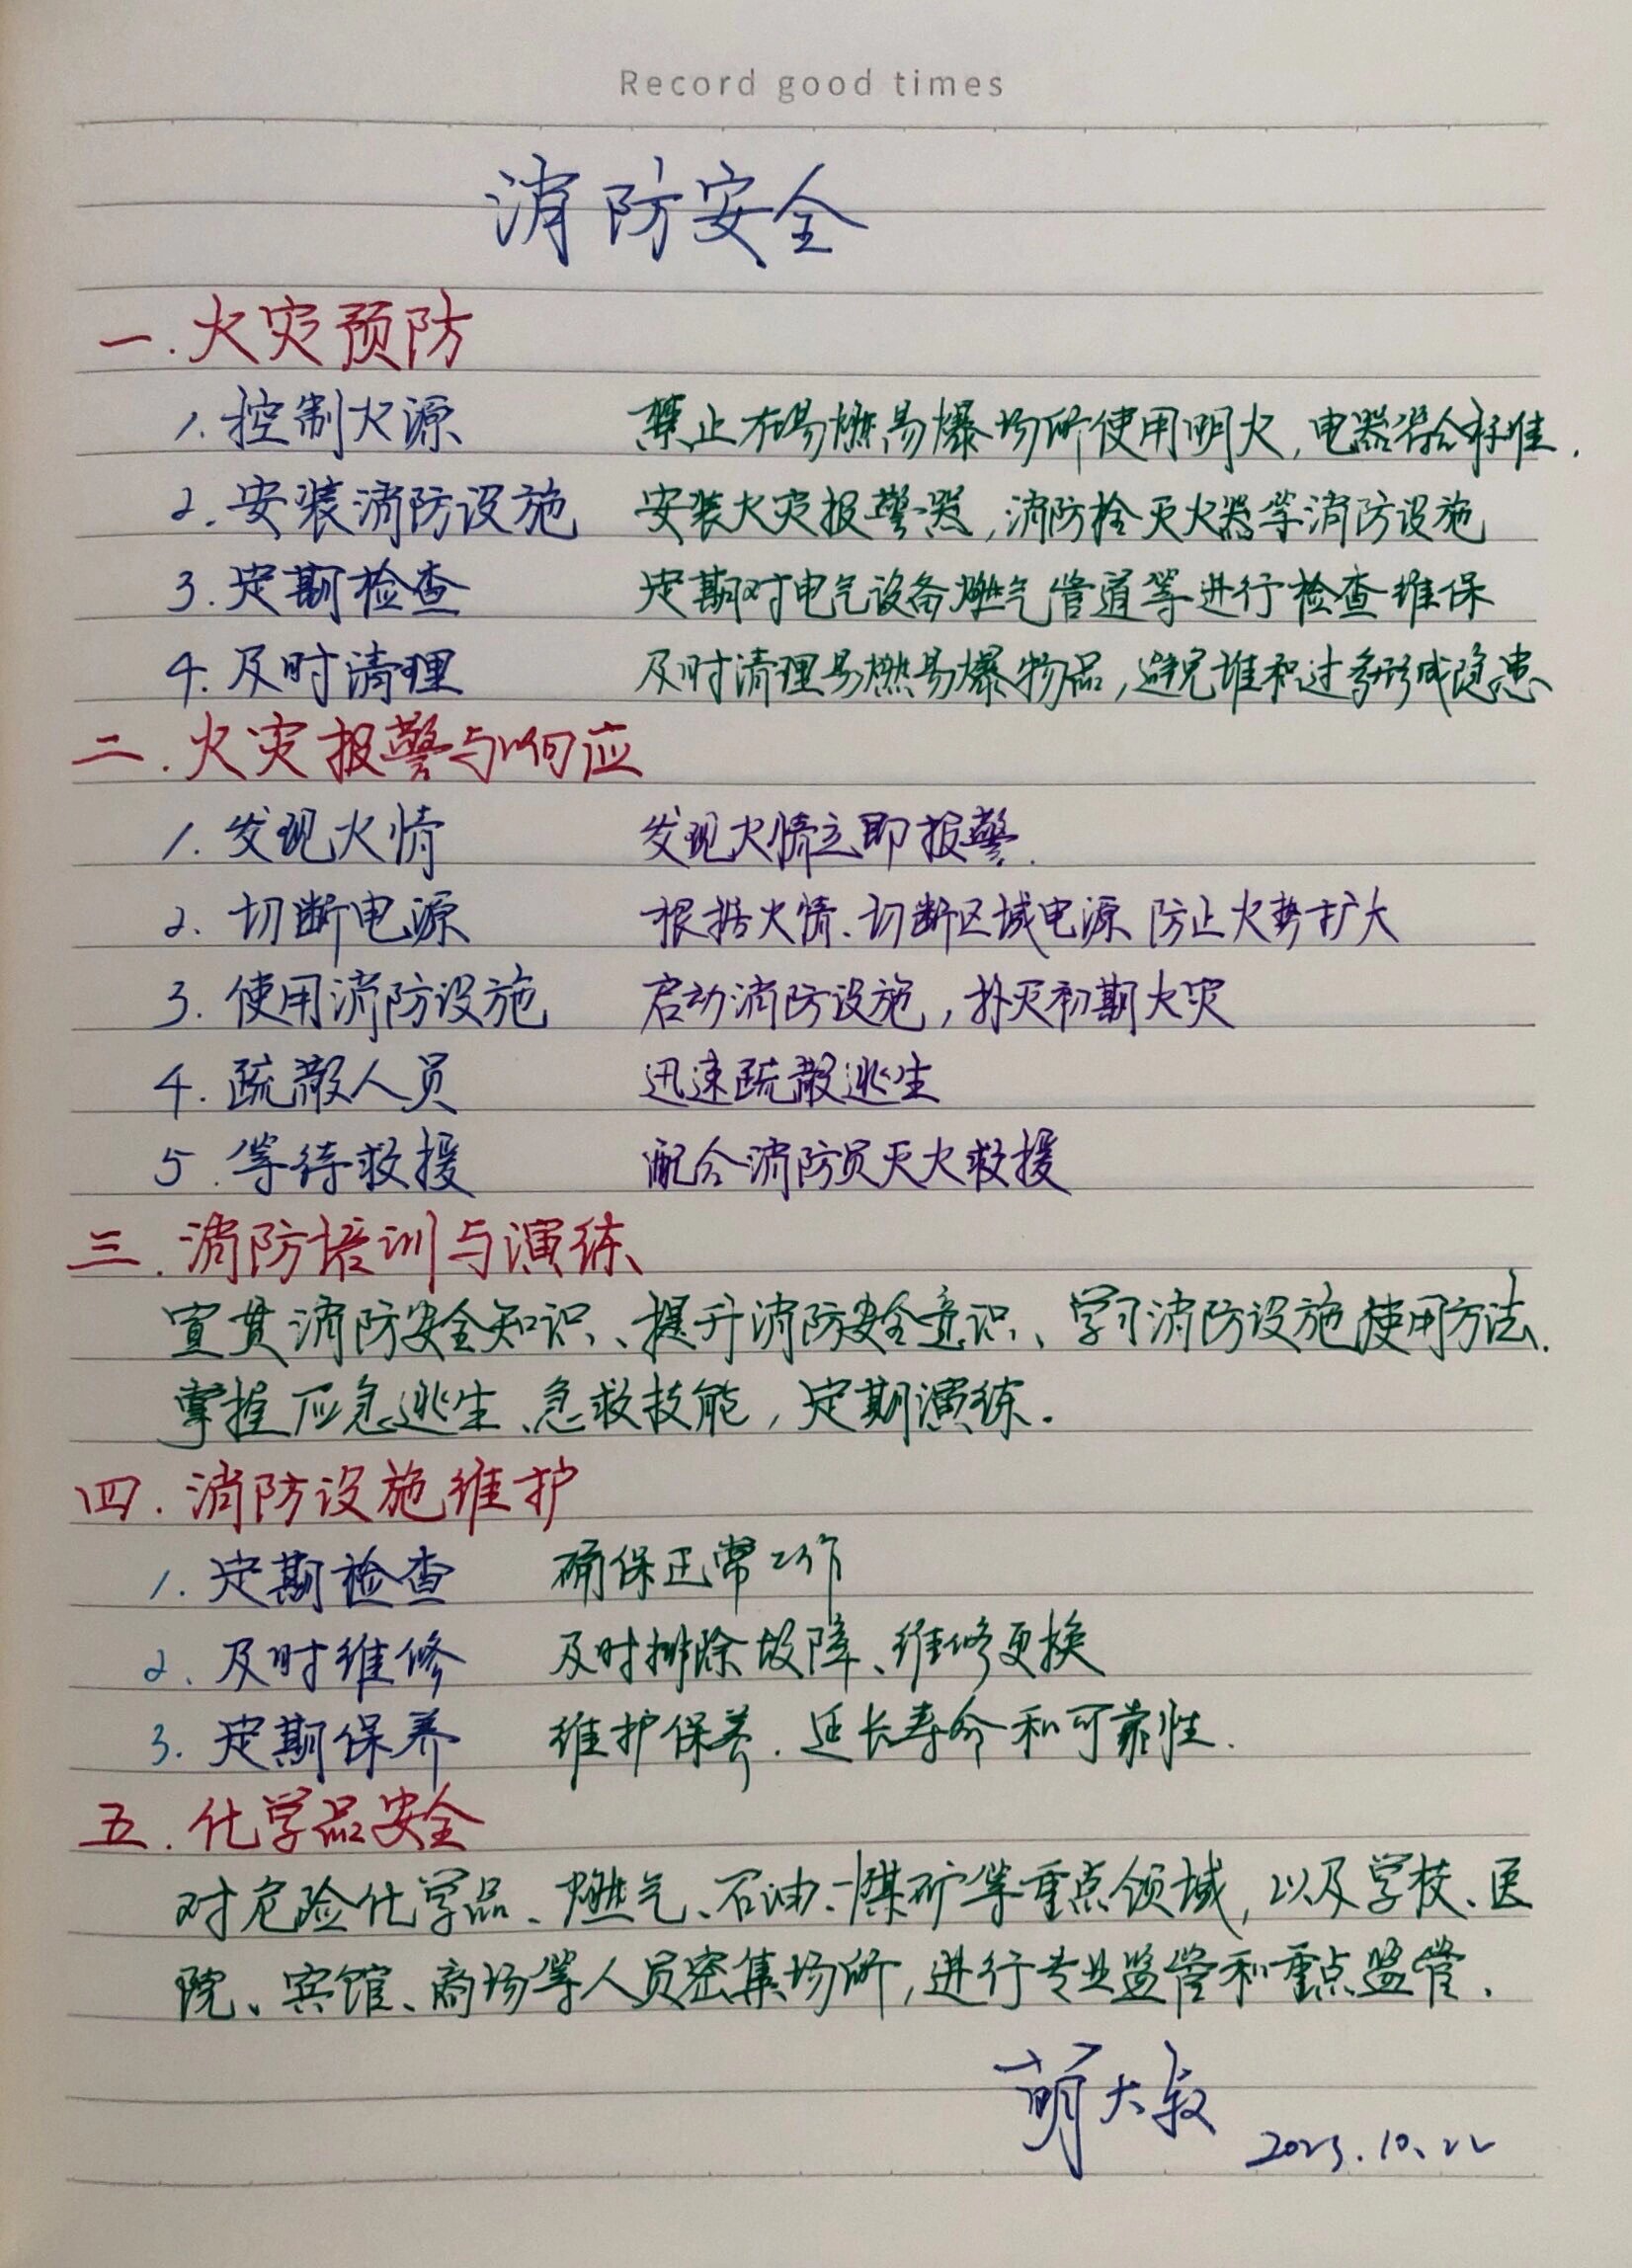 Record good times
消防安全
一.火灾预防
1.控制火源 禁止在易燃易爆场所使用明火,电器符合标准.
2.安装消防设施 安装火灾报警器,消防栓灭火器等消防设施
3.定期检查 定期对电气设备燃气管道等进行检查维保
4.及时清理 及时清理易燃易爆物品,避免堆积过多形成隐患
二.火灾报警与响应
1.发现火情 发现火情立即报警.
2.切断电源 根据火情、切断区域电源、防止火势扩大
3.使用消防设施 启动消防设施,扑灭初期火灾
4.疏散人员 迅速疏散逃生
5.等待救援 配合消防员灭火救援
三.消防培训与演练
宣贯消防安全知识、提升消防安全意识、学习消防设施使用方法.
掌握应急逃生、急救技能,定期演练.
四.消防设施维护
1.定期检查 确保正常工作
2.及时维修 及时排除故障、维修更换
3.定期保养 维护保养.延长寿命和可靠性.
五.化学品安全
对危险化学品、燃气、石油、煤矿等重点领域,以及学校、医
院、宾馆、商场等人员密集场所,进行专业监管和重点监管.
萌大叔 2023.10.22